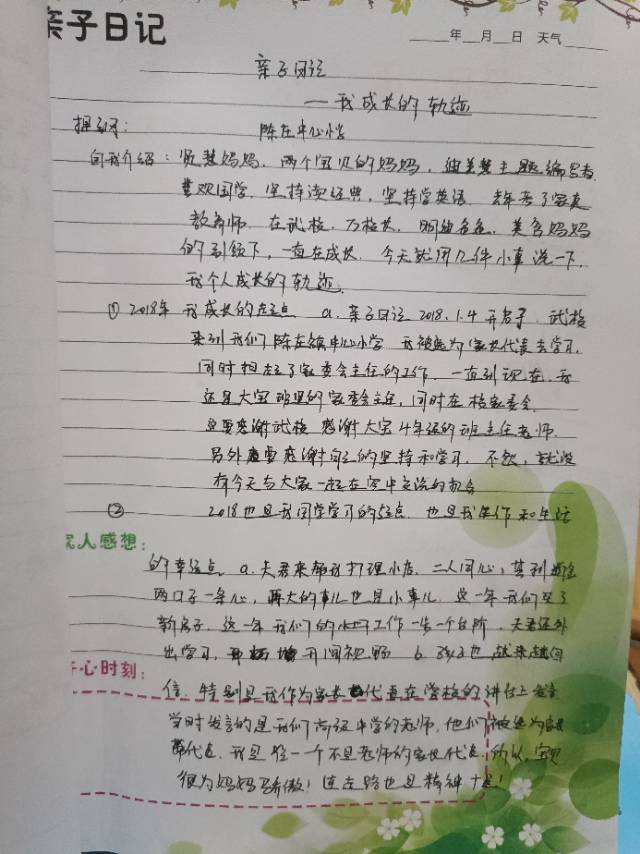 亲子日记
年 月 日 天气
亲子日记
——我成长的轨迹
陈在中心小学
自我介绍：贤慧妈妈，两个宝贝的妈妈，
喜欢国学，坚持读经典，坚持学英语，去年考了家庭
教育师，在武校，万校长，
的引领下，一直在成长，今天就用几件小事说一下，
我个人成长的轨迹。
①2018年 我成长的起点 a. 亲子日记 2018.1.4 开启了 武校
来到我们陈在镇中心小学 我被选为家长代表去学习，
同时担起了家委会主任的工作，一直到现在，我
还是大宝班里的家委会主任，同时在校家委会，
也要感谢武校 感谢大宝4年级的班主任老师
另外还要感谢自己的坚持和学习，不然，就没
有今天与大家一起在空中交流的机会
② 2018也是我国学学习的起点，也是我工作和生活
家人感想：
的幸运点 a. 夫君来帮我打理小店，二人同心，其利断金
两口子一条心，再大的事儿也是小事儿，这一年我们买了
新房子，这一年我们的工作一步一个台阶，夫君还外
出学习，开阔视野 b. 孩子也越来越自
开心时刻：
信，特别是我作为家长代表在学校的讲台上发言
当时发言的是我们高级中学的老师，他们被选为家长
代表，我是唯一一个不是老师的家长代表，所以，宝贝
很为妈妈骄傲！连走路也是精神十足！